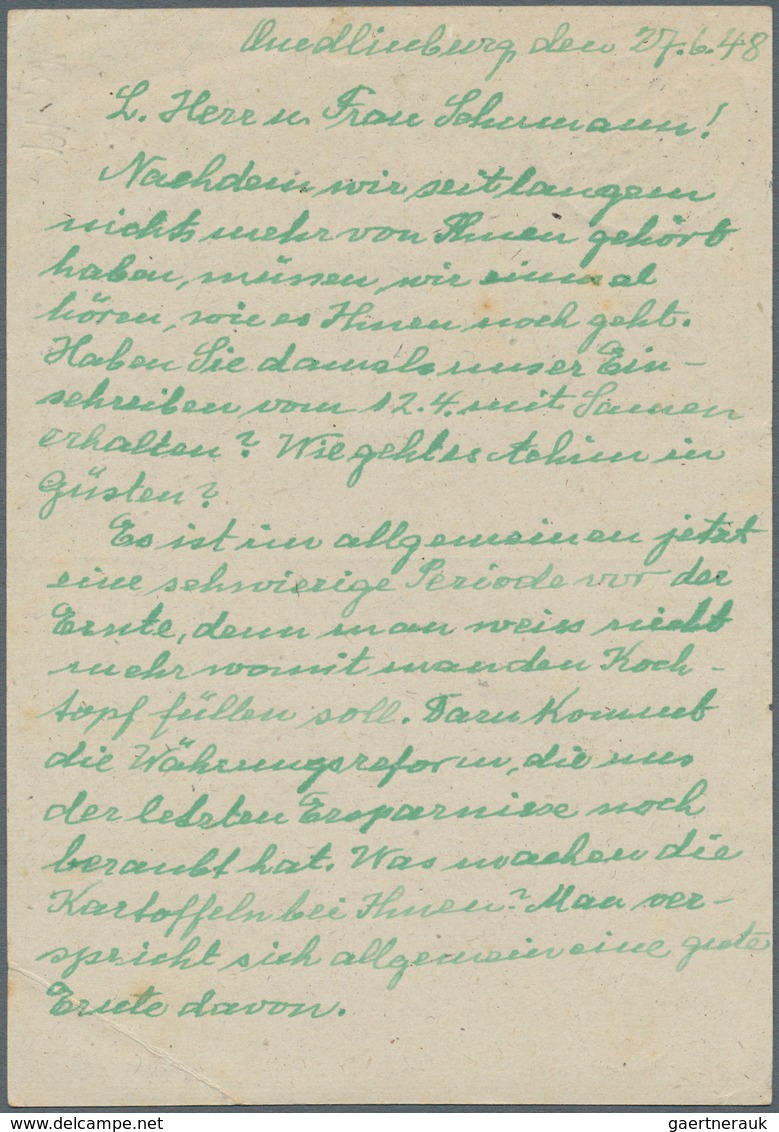 Quedlinburg, den 27.6.48
L. Herr u. Frau Schumann!
Nachdem wir seit langem
nichts mehr von Ihnen gehört
haben, müssen wir einmal
hören, wie es Ihnen noch geht.
Haben Sie damals unser Ein-
schreiben vom 12.4. mit Samen
erhalten? Wie geht es Achim in
Güsten?
Es ist im allgemeinen jetzt
eine schwierige Periode vor der
Ernte, denn man weiss nicht
mehr womit man den Koch-
topf füllen soll. Dazu kommt
die Währungsreform, die uns
der letzten Ersparnisse noch
beraubt hat. Was machen die
Kartoffeln bei Ihnen? Man ver-
spricht sich allgemein eine gute
Ernte davon.
www.delcampe.net
gaertnerauk